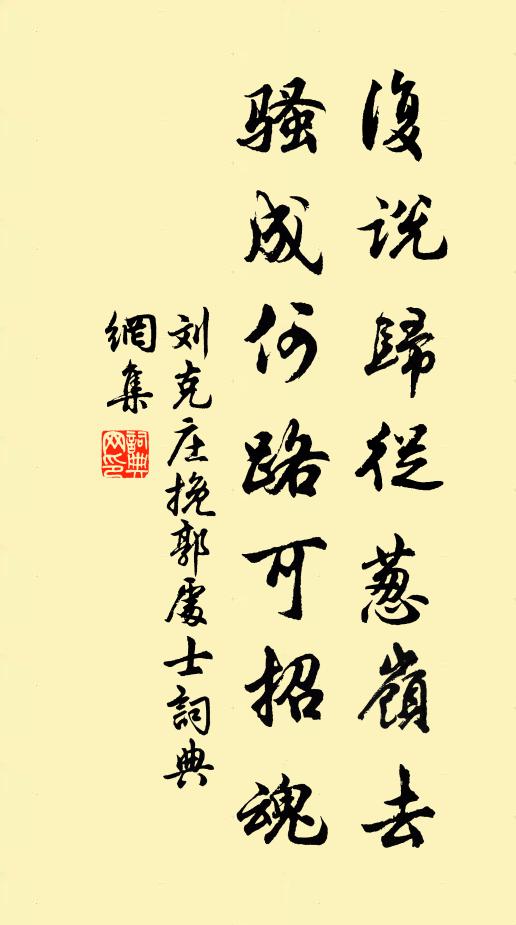 復説歸從蔥嶺去
騷成何路可招魂
刘克庄挽郭處士詞典
網集
詞典
网印